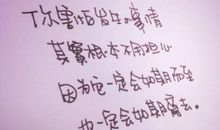 你害怕发生の事情
其實根本不用担心
因為它一定会如期而至
也一定会如期离去。